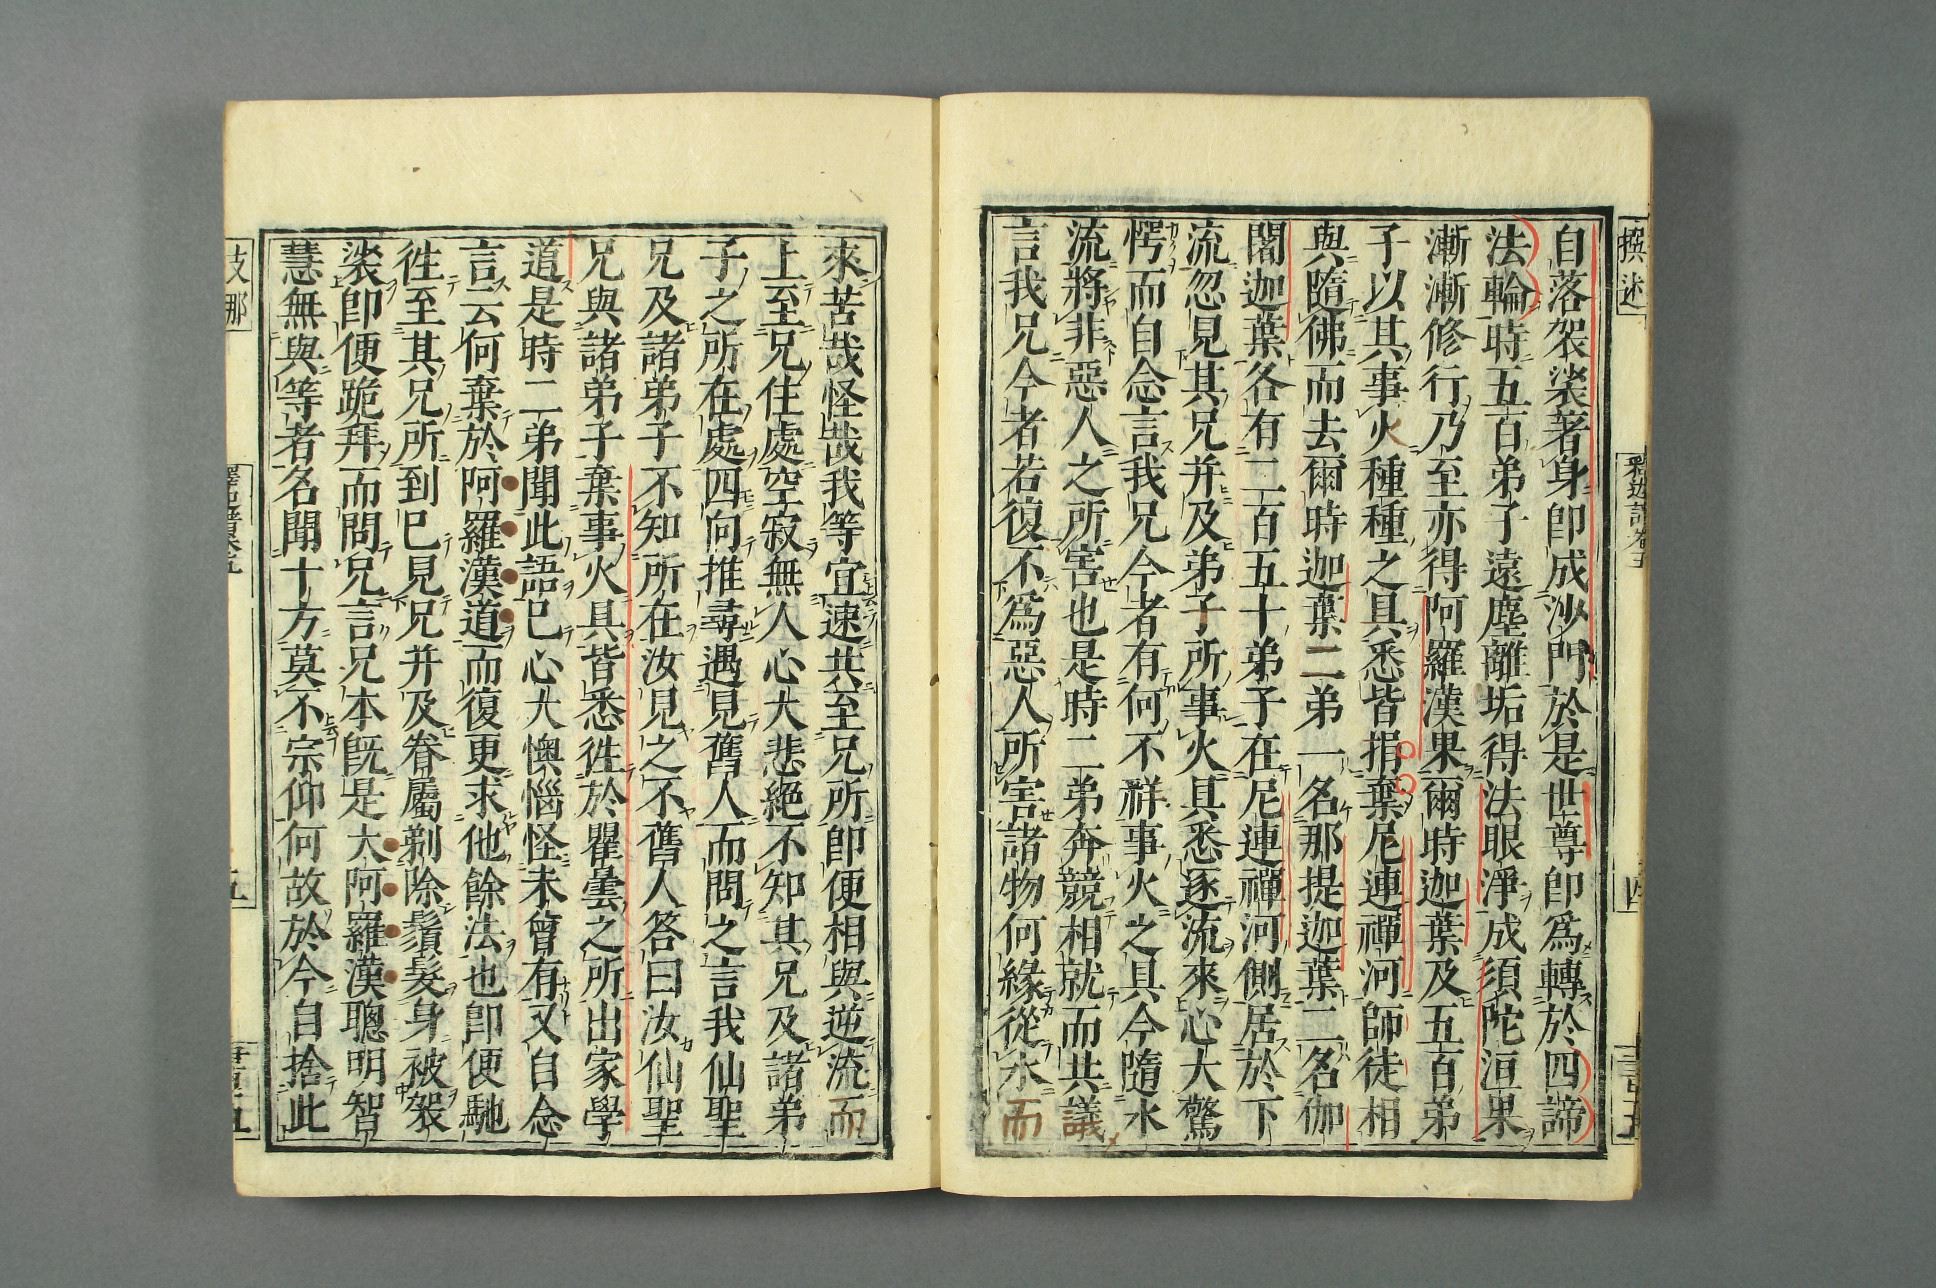 撰述
自落袈裟著身卽成沙門於是世尊卽爲轉於四諦
法輪時五百弟子遠塵離垢得法眼淨成須陀洹果
漸漸修行乃至亦得阿羅漢果爾時迦葉及五百弟
子以其事火種種之具悉皆捐棄尼連禪河師徒相
與隨佛而去爾時迦葉二弟一名那提迦葉二名伽
闍迦葉各有二百五十弟子在尼連禪河側居於下
流忽見其兄并及弟子所事火具悉逐流來心大驚
愕而自念言我兄今者有何不祥事火之具今隨水
流將非惡人之所害也是時二弟奔競相就而共議
言我兄今者若復不爲惡人所害諸物何緣從水而
來苦哉怪哉我等宜速共至兄所卽便相與逆流而
上至兄住處空寂無人心大悲絕不知其兄及諸弟
子之所在處四向推尋遇見舊人而問之言我仙聖
兄及諸弟子不知所在汝見之不舊人答曰汝仙聖
兄與諸弟子棄事火具皆悉徃於瞿曇之所出家學
道是時二弟聞此語已心大懊惱怪未曾有又自念
言云何棄於阿羅漢道而復更求他餘法也卽便馳
徃至其兄所到已見兄并及眷屬剃除鬚髮身被袈
裟卽便跪拜而問兄言兄本旣是大阿羅漢聰明智
慧無與等者名聞十方莫不宗仰何故於今自捨此
支那